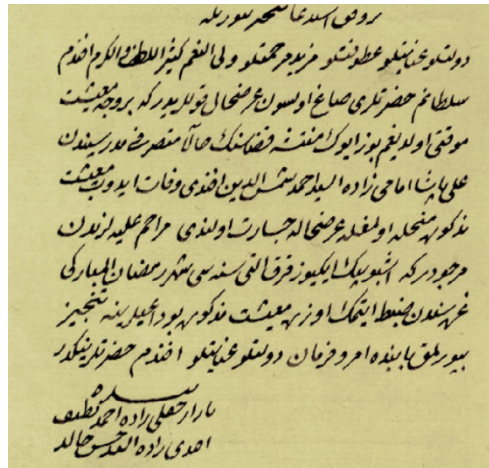 بروفق استدعا تنجز بيوريله
دولتلو عنايتلو عطوفتلو مزيد مرحمتلو ولى النعم كثير اللطف والكرم افندم
سلطانم حضرتلرى صاغ اولسون عرضحال قوللريدر كه بر وجه معيشت
اولديغم بوزايوك قضاسنك حالا متصرفى مدرسيندن
على پاشا امامى زاده السيد احمد شمس الدين افندى وفات ايدوب معيشت
منحله اولمغله عرضحاله جسارت اولندى مراحم عليه لرندن
مرجودر كه اشبو بيك ايكيوز قرق التى سنه سى شهر رمضان المباركى
غره سندن ضبط ايتمك اوزره معيشت بو داعيلرينه تنجيز
بيورلمق بابنده امر و فرمان دولتلو عنايتلو افندم حضرتلرينكدر
بنده
زاده احمد نظيف
زاده السيد حسن خالد